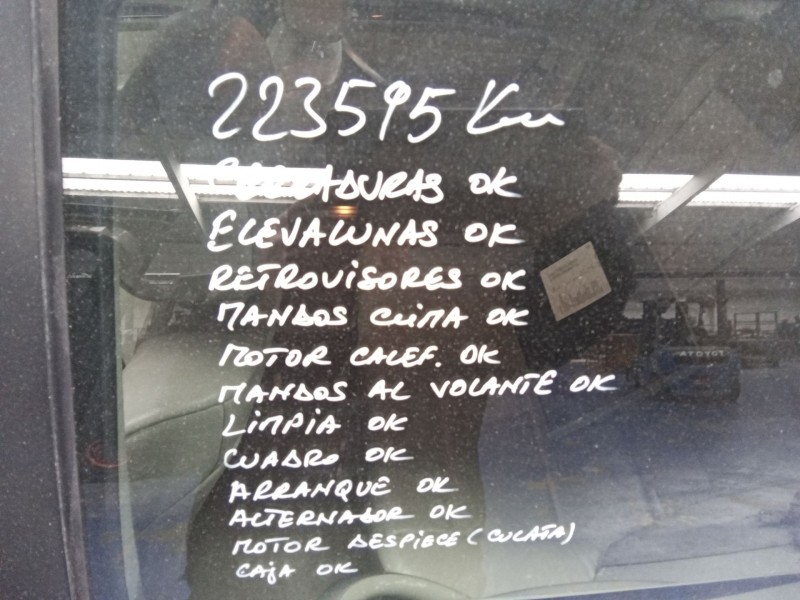 223595 Km
CERRADURAS OK
ELEVALUNAS OK
RETROVISORES OK
MANDOS CLIMA OK
MOTOR CALEF. OK
MANDOS AL VOLANTE OK
LIMPIA OK
CUADRO OK
ARRANQUE OK
ALTERNADOR OK
MOTOR DESPIECE (CULATA)
CAJA OK